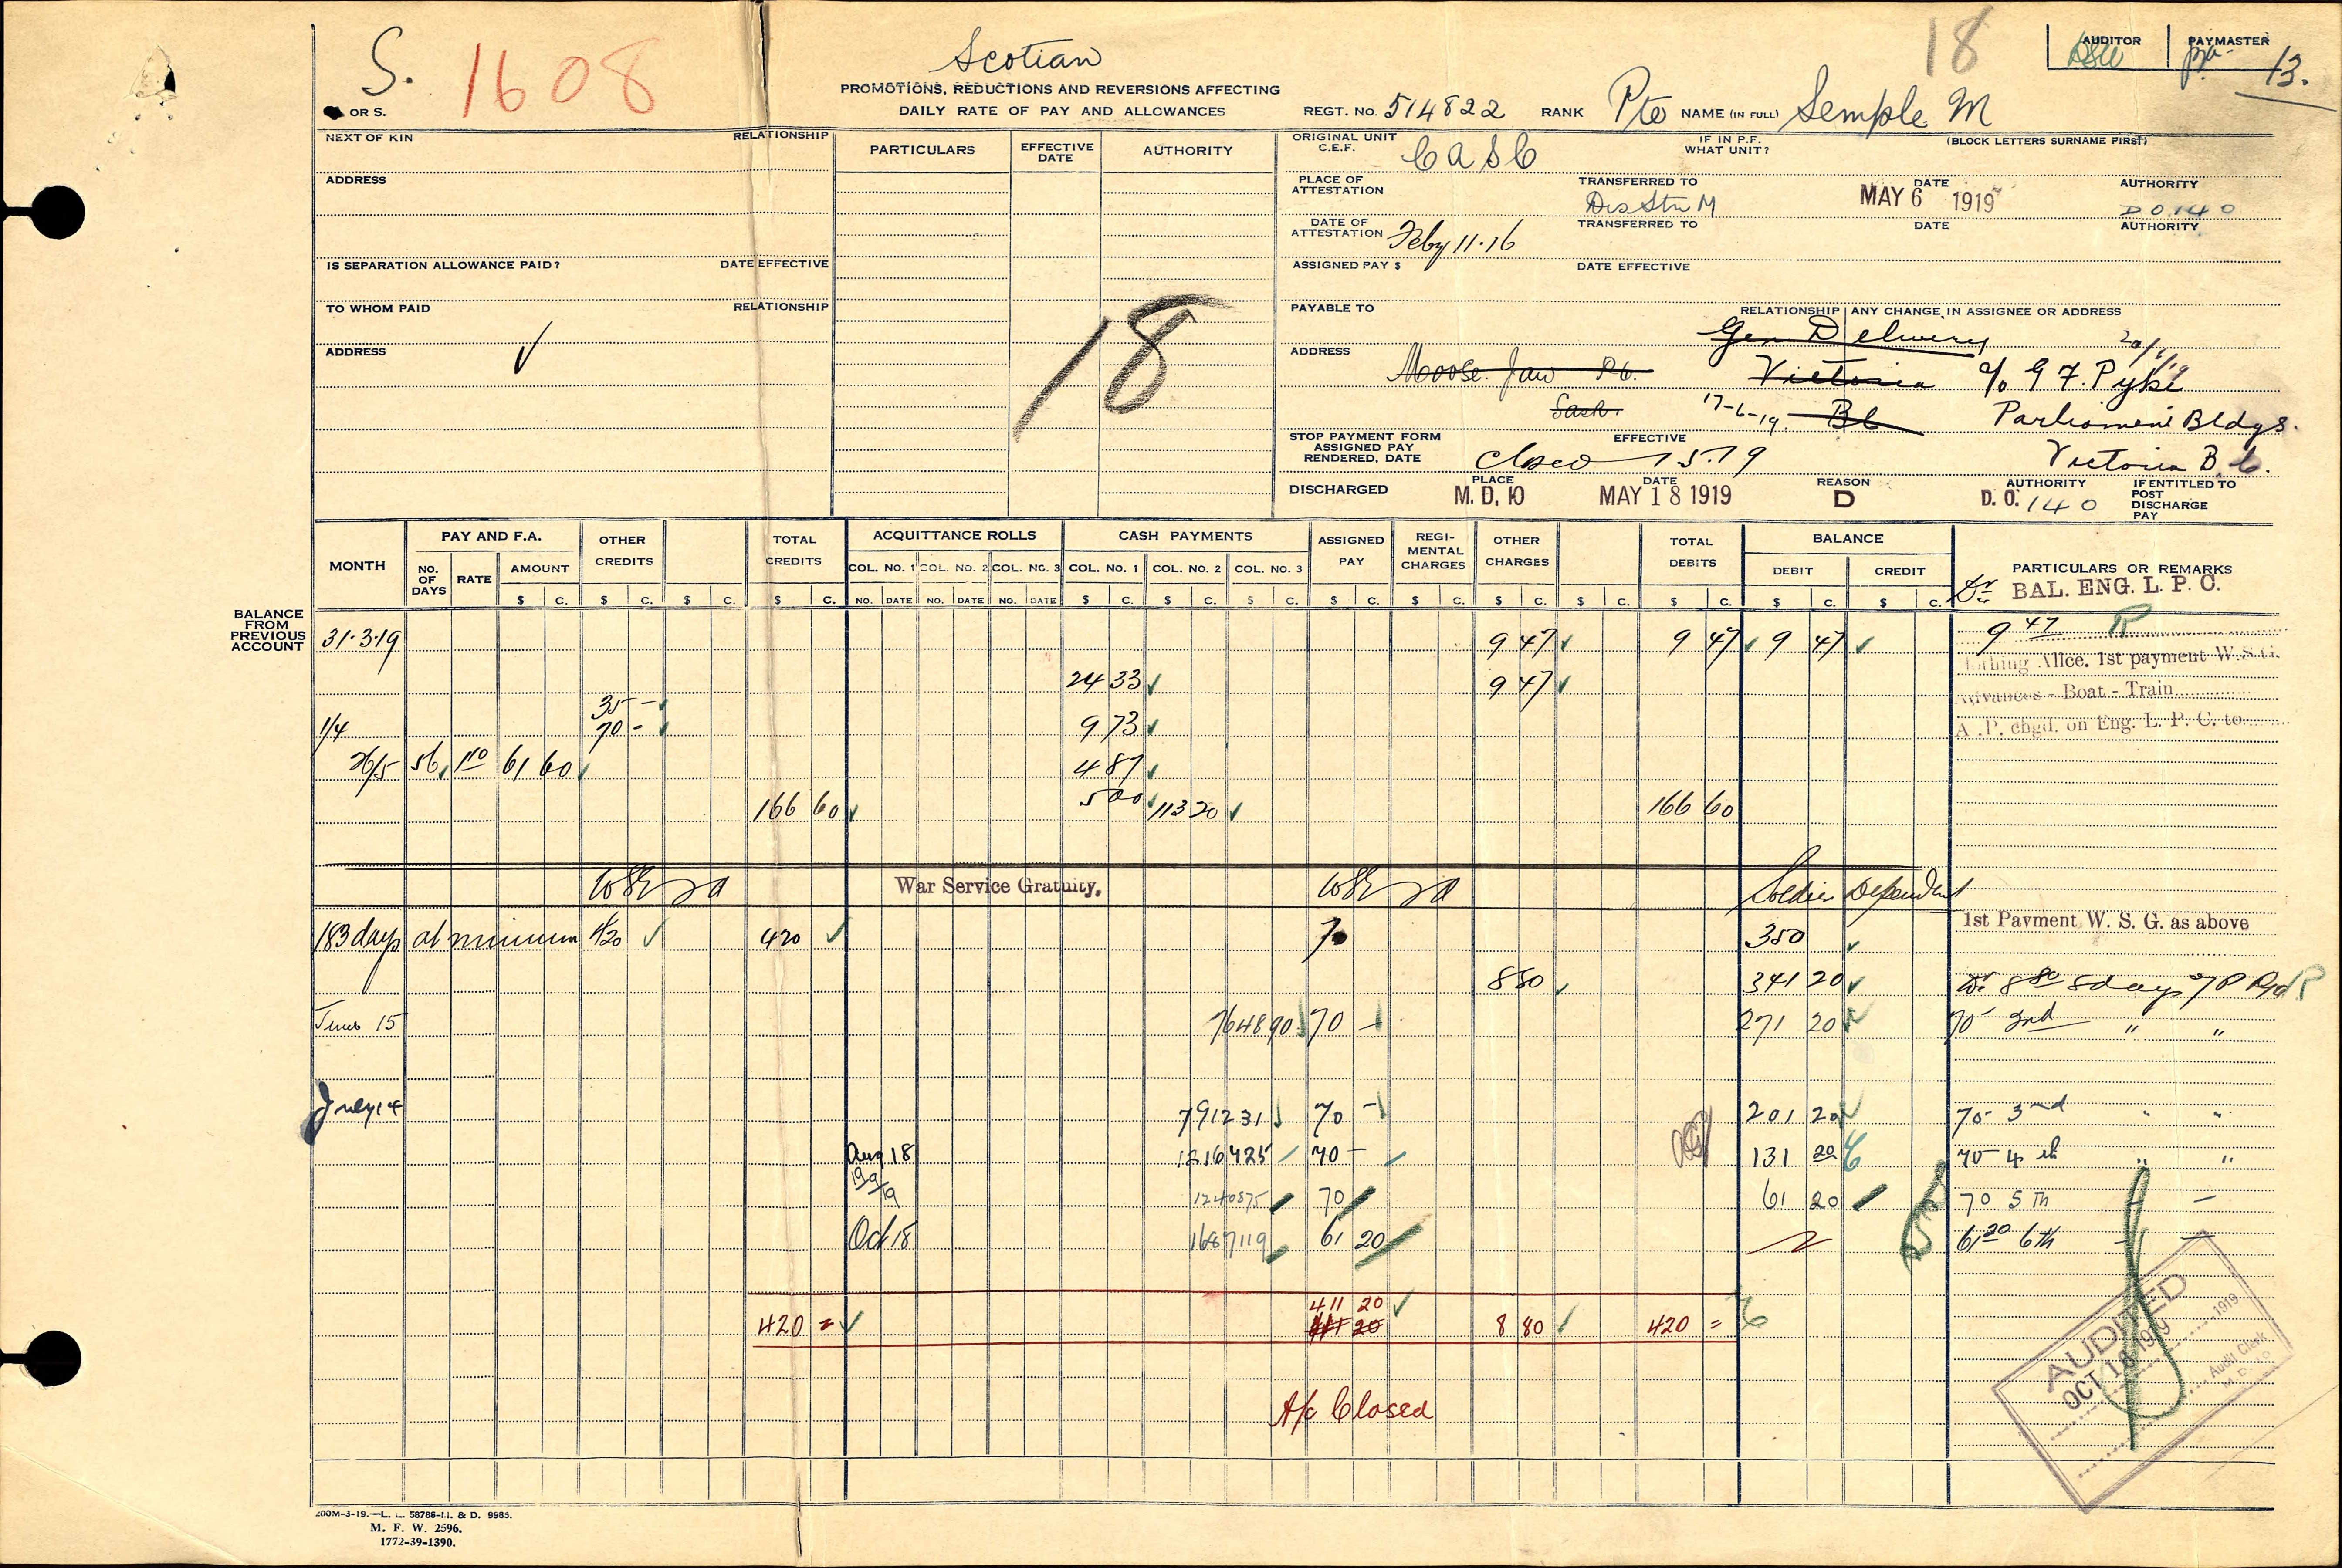 S. 1608
OR S.
Scotian
18
AUDITOR
PAYMASTER
13.
PROMOTIONS, REDUCTIONS AND REVERSIONS AFFECTING
DAILY RATE OF PAY AND ALLOWANCES
REGT. NO. 514822 RANK Pte NAME (IN FULL) Semple M
(BLOCK LETTERS SURNAME FIRST)
NEXT OF KIN RELATIONSHIP
ADDRESS
IS SEPARATION ALLOWANCE PAID? DATE EFFECTIVE
TO WHOM PAID RELATIONSHIP
ADDRESS
PARTICULARS EFFECTIVE DATE AUTHORITY
18
ORIGINAL UNIT C.E.F. CASC IF IN P.F. WHAT UNIT?
PLACE OF ATTESTATION TRANSFERRED TO Dis Stn M DATE MAY 6 1919 AUTHORITY DO 140
DATE OF ATTESTATION Feby 11.16 TRANSFERRED TO DATE AUTHORITY
ASSIGNED PAY $ DATE EFFECTIVE
PAYABLE TO RELATIONSHIP ANY CHANGE IN ASSIGNEE OR ADDRESS
Gen Delivery
ADDRESS Moose Jaw Victoria c/o G F. Pyke
Sask. 17-6-19. BC Parliament Bldgs.
Victoria B.C.
STOP PAYMENT FORM ASSIGNED PAY RENDERED, DATE EFFECTIVE Closed 1 5.19
DISCHARGED PLACE M. D. 10 DATE MAY 18 1919 REASON D AUTHORITY D. O. 140 IF ENTITLED TO POST DISCHARGE PAY
MONTH PAY AND F.A. OTHER CREDITS TOTAL CREDITS ACQUITTANCE ROLLS CASH PAYMENTS ASSIGNED PAY REGI-MENTAL CHARGES OTHER CHARGES TOTAL DEBITS BALANCE PARTICULARS OR REMARKS
NO. OF DAYS RATE AMOUNT COL. NO. 1 COL. NO. 2 COL. NO. 3 COL. NO. 1 COL. NO. 2 COL. NO. 3 DEBIT CREDIT
$ C. $ C. $ C. $ C. NO. DATE NO. DATE NO. DATE $ C. $ C. $ C. $ C. $ C. $ C. $ C. $ C. $ C. $ C.
Dr BAL. ENG. L. P. C.
BALANCE FROM PREVIOUS ACCOUNT 31.3.19 9 47 9 47 9 47 9 47
Clothing Allce. 1st payment W.S.G.
24 33 9 47
Advances - Boat - Train
35 -
1/4 70 - 9 73
A.P. chgd. on Eng. L. P. C. to
26/5 56 1 10 61 60 4 87
5 00
166 60 113 20 166 60
WSG War Service Gratuity, WSG Soldier Dependent
1st Payment W. S. G. as above
183 days at minimum 420 420 70 350
8 80 341 20 8 80 8 days
June 15 764890 70 - 271 20 70 2nd " "
July 14 791231 70 - 201 20 70 3rd " "
Aug 18 1216425 70 - 131 20 70 4th " "
19/9/19 1240875 70 61 20 70 5th - -
Oct 18 1687119 61 20 61 20 6th - -
411 20
420 = 411 20 8 80 420 =
A/c Closed
AUDITED
OCT 18 1919
1919
Audit Clerk
M. D. 10
200M-3-19.—L. L. 58786-M. & D. 9985.
M. F. W. 2596.
1772-39-1390.